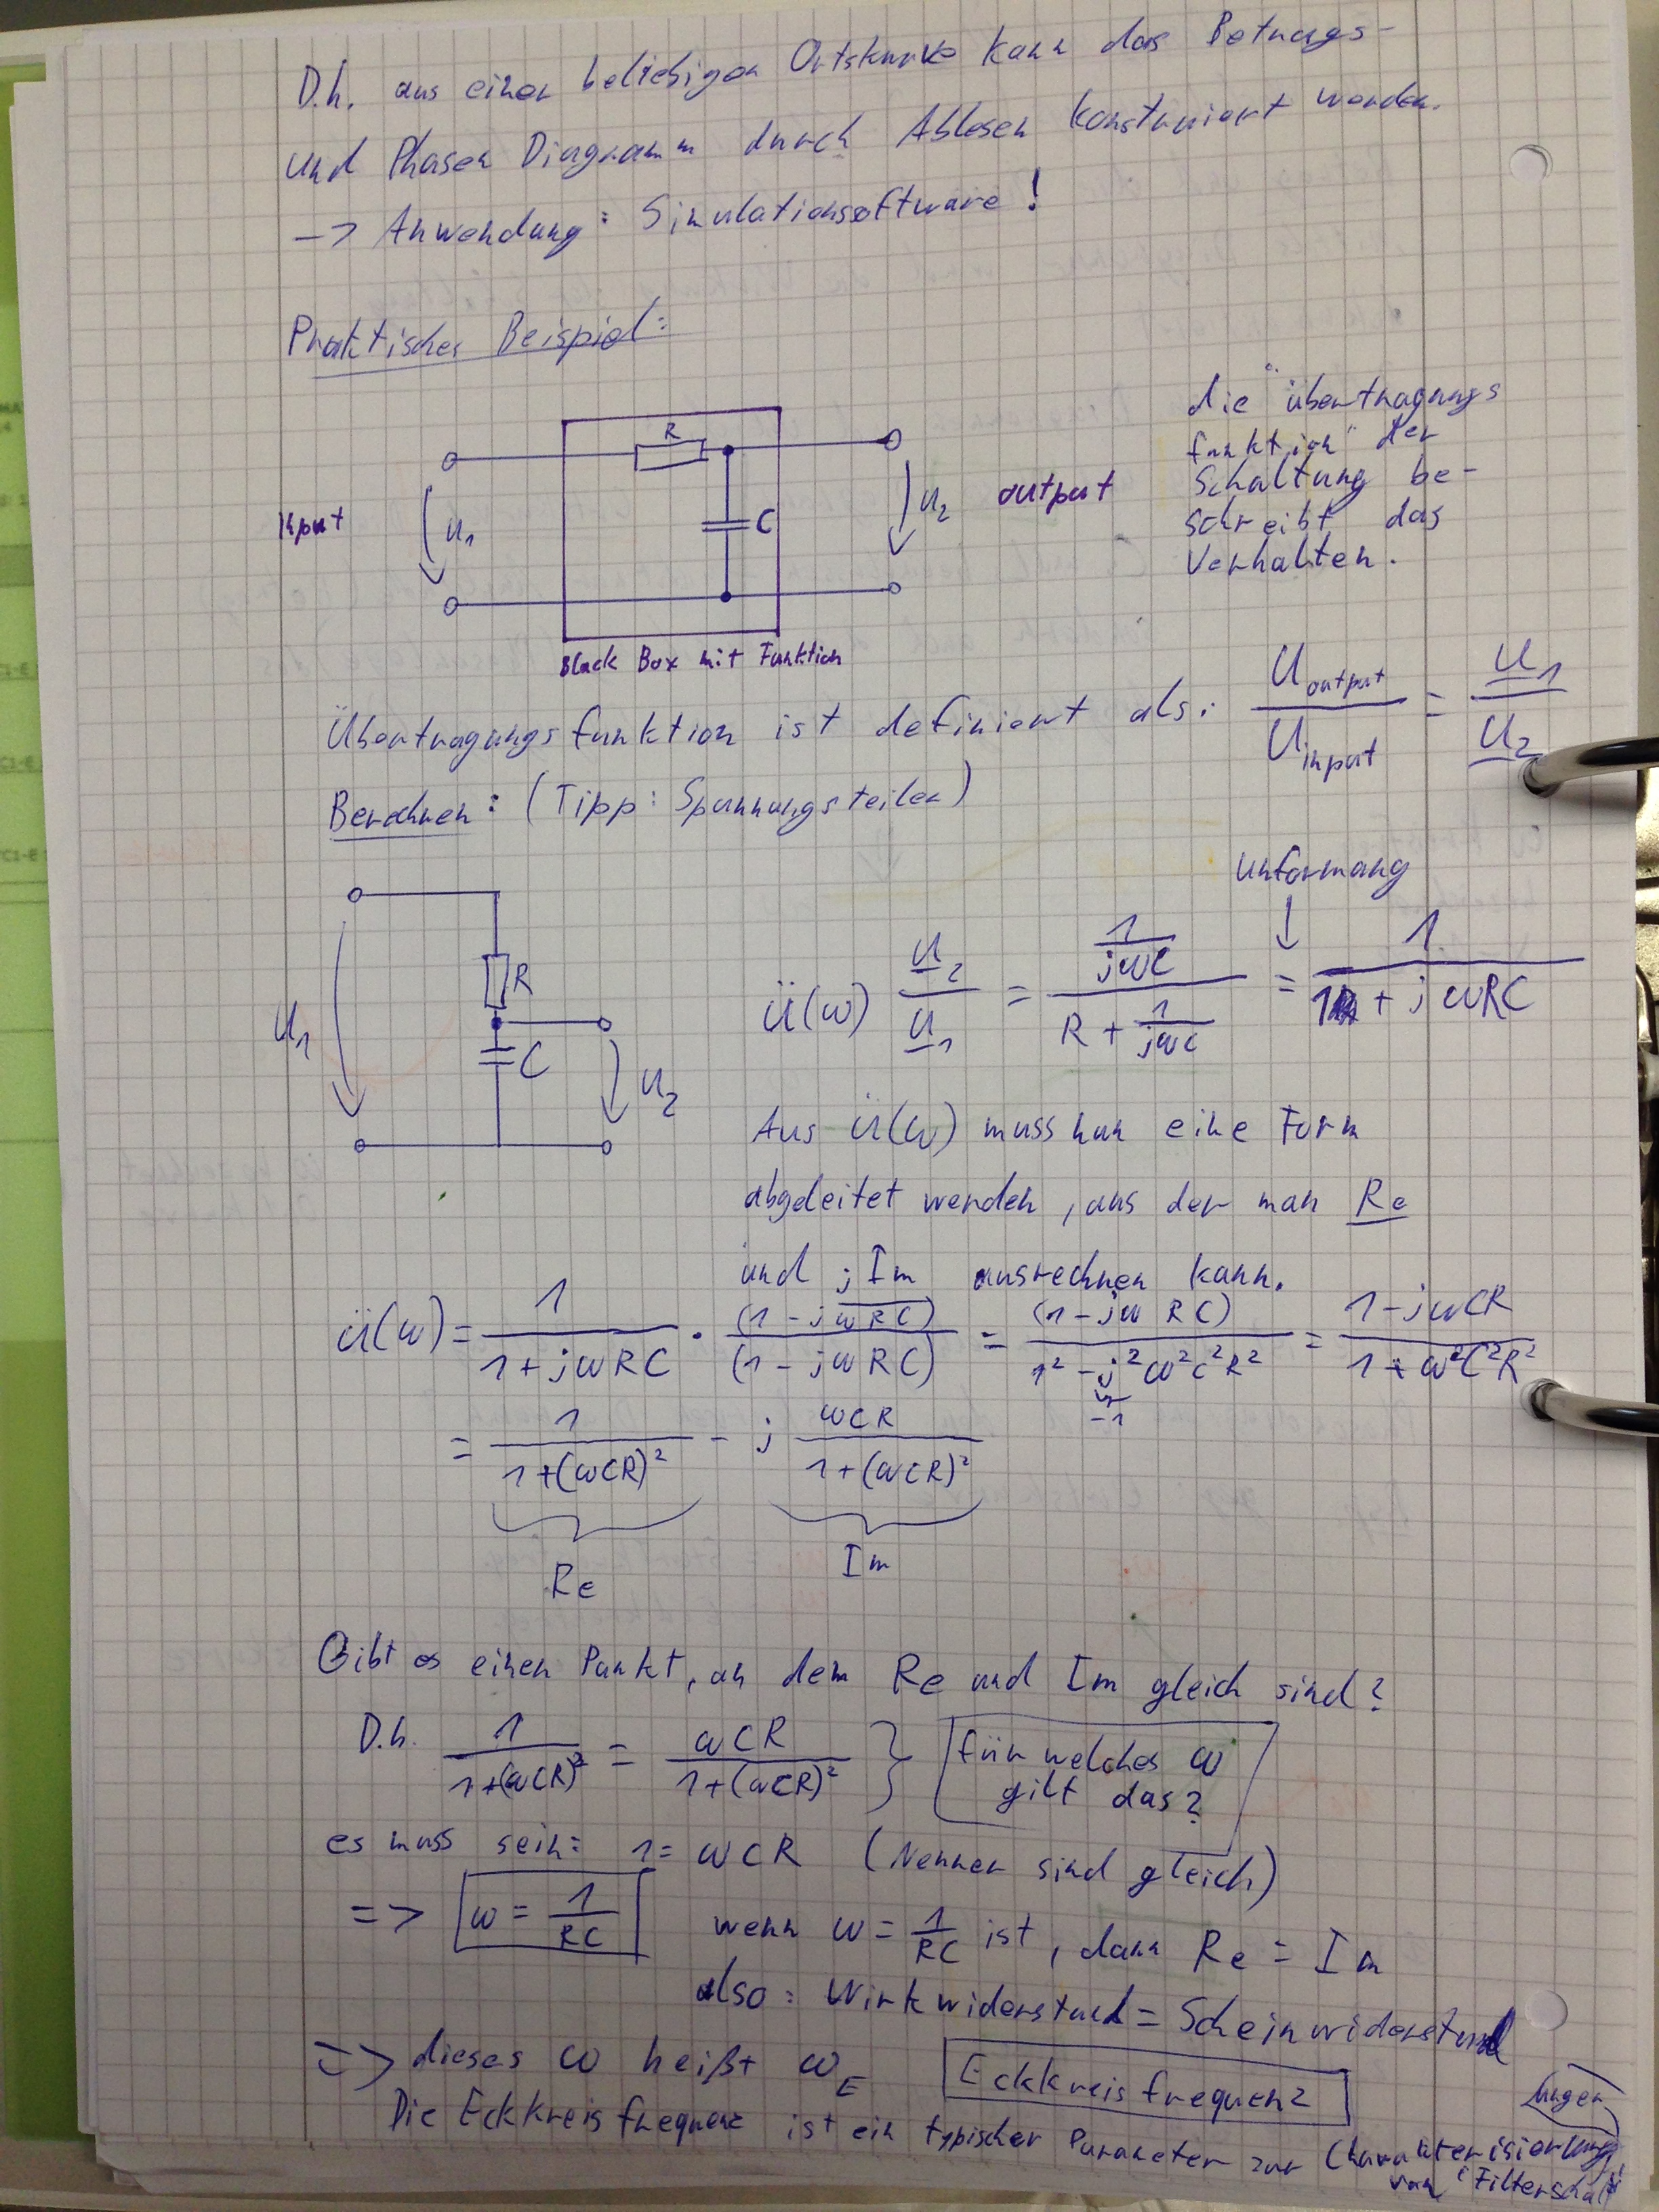 D.h. aus einer beliebigen Ortskurve kann das Betrags-
und Phasen Diagramm durch Ablesen konstruiert werden.
-> Anwendung: Simulationssoftware!
Praktisches Beispiel:
Input
U1
R
C
U2
output
Black Box mit Funktion
die "übertragungs
funktion" der
Schaltung be-
schreibt das
Verhalten.
Übertragungsfunktion ist definiert als: U_output / U_input = U1 / U2
Berechnen: (Tipp: Spannungsteiler)
Umformung
U1
R
C
U2
Ü(ω) U2/U1 = (1/jωC) / (R + 1/jωC) = 1 / (1 + jωRC)
Aus Ü(ω) muss nun eine Form
abgeleitet werden, aus der man Re
und jIm ausrechnen kann.
Ü(ω) = 1/(1+jωRC) · (1-jωRC)/(1-jωRC) = (1-jωRC)/(1²-j²ω²C²R²) = (1-jωCR)/(1+ω²C²R²)
-1
= 1/(1+(ωCR)²) - j ωCR/(1+(ωCR)²)
Re Im
Gibt es einen Punkt, an dem Re und Im gleich sind?
D.h. 1/(1+(ωCR)²) = ωCR/(1+(ωCR)²) } für welches ω
gilt das?
es muss sein: 1 = ωCR (Nenner sind gleich)
=> ω = 1/RC wenn ω = 1/RC ist, dann Re = Im
also: Wirkwiderstand = Scheinwiderstand
=> dieses ω heißt ω_E Eckkreisfrequenz
Die Eckkreisfrequenz ist ein typischer Parameter zur Charakterisierung
von Filterschalt
ungen